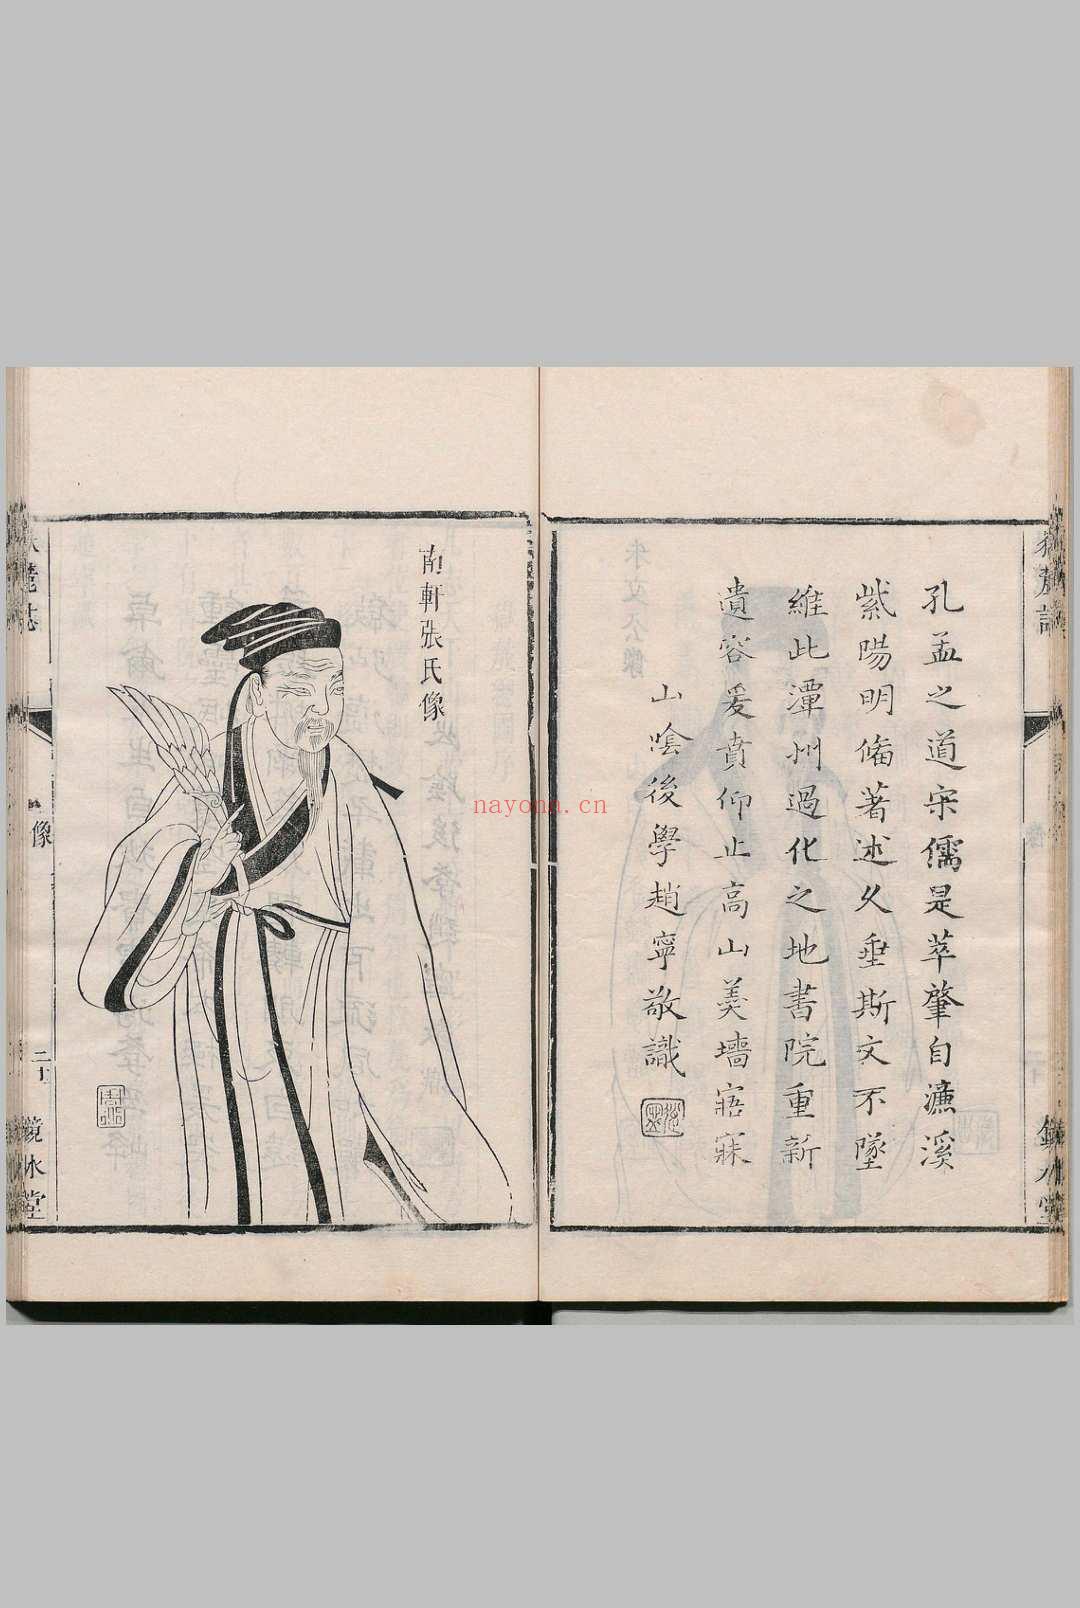 孔孟之道宋儒是萃肇自濂溪
紫陽明偹著述久垂斯文不墜
維此潭州過化之地書院重新
遺容爰賁仰止高山羹墻寤寐
山陰後學趙寧敬識
南軒張氏像
像
二十
鏡水堂
nayona.cn